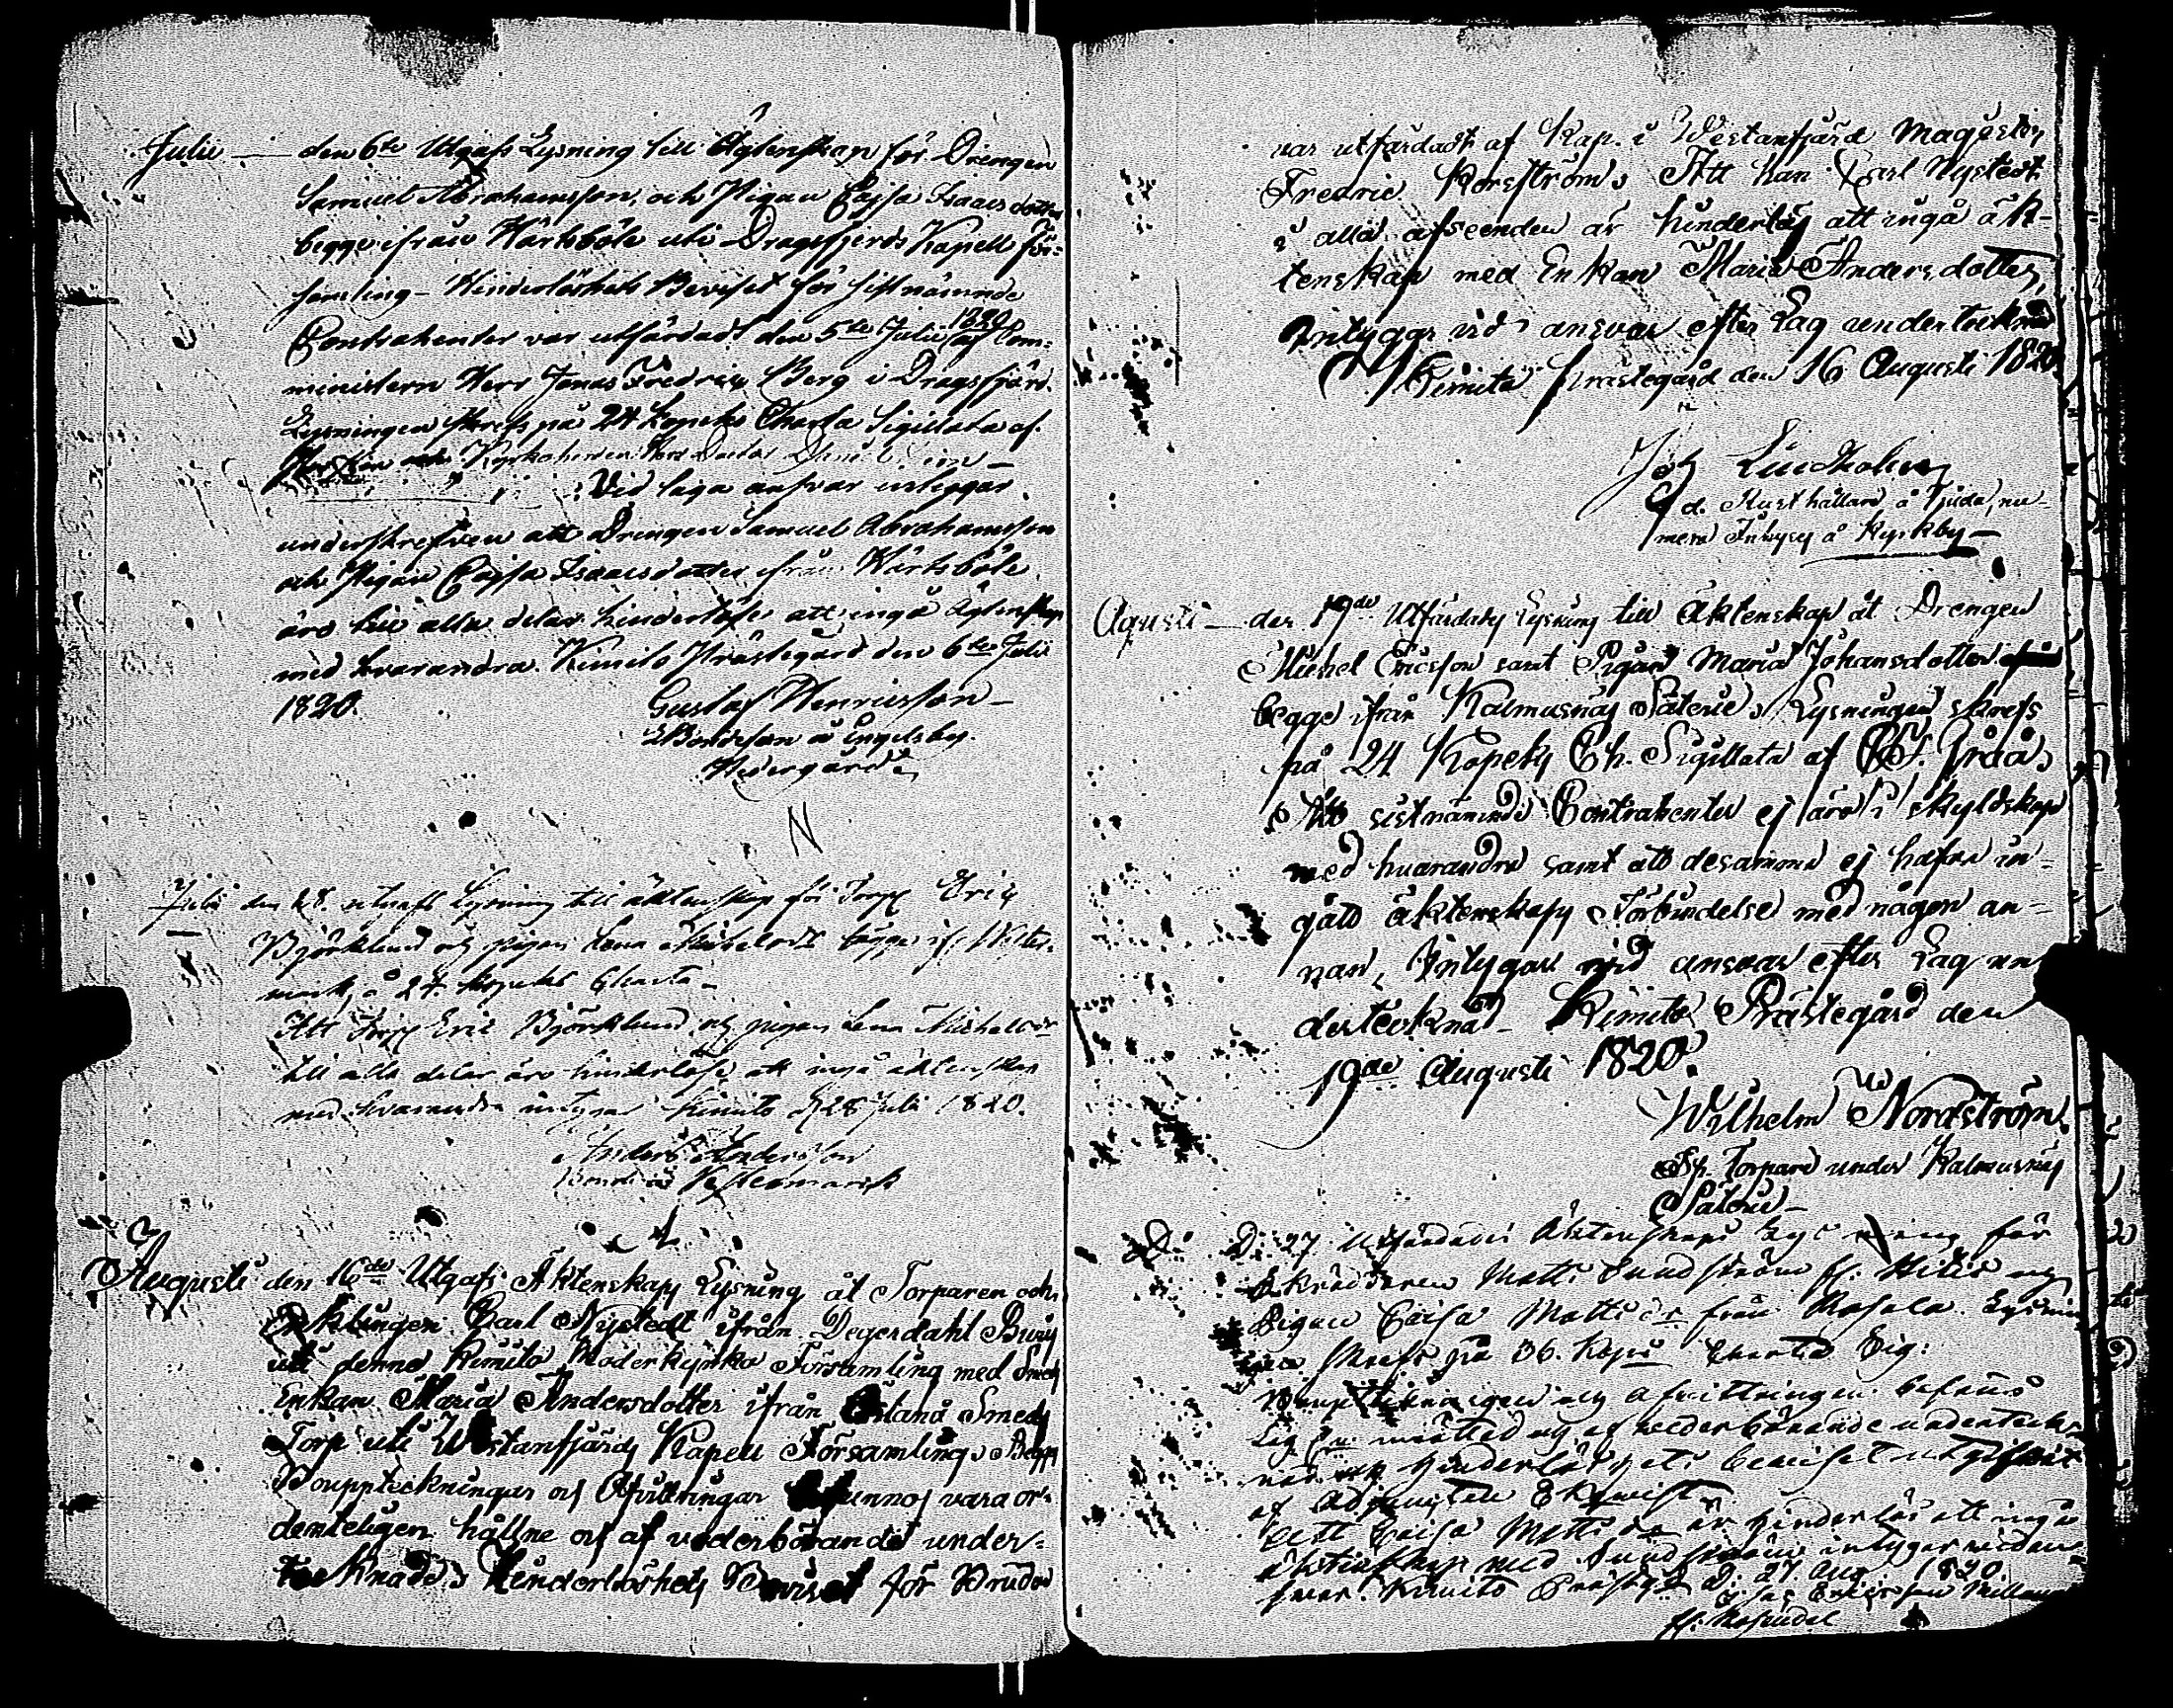 Julii — den 6te Utgafs Lysning till Ägtenskap för Drengen
Samuel Abrahamsson, och Pigan Cajsa Isaacsdotter
begge ifrån Hårtsböle uti Dragsfjerds Kapell För-
samling – Hinderlöshets Beviset för sistnämnde
Contrahenter var utfärdadt den 5te Julii 1820 af Com-
ministern Herr Jonas Fredric Berg i Dragsfjärd.
Lysningen skrefs på 24 kopeks Charta Sigillata af
Kyrkoherden Herr Doctor
Vid laga ansvar intygar
underskrefven att Drengen Samuel Abrahamsson
och Pigan Cajsa Isaacsdotter ifrån Hårtsböle
äro till alla delar hinderlöse att ingå Ägtenskap
med hvarandra. Kimito Prästegård den 6te Julii
1820. Gustaf Henricsson –
Bonde från Engelsby
Nedergård
N
Julii den 28. utgafs Lysning till äktenskap för Torp Eric
Björklund och pigan Lena Michelsdr bägge ifr Vester-
mark, å 24. kopeks Charta –
Att Torp Eric Björklund och pigan Lena Michelsdr
till alla delar äro hinderlöse att ingå äktenskap
med hvarandra intygar Kimito d 28 Julii 1820.
Anders Andersson
Bonde å Vestermark
Augusti den 16de Utgafs Äktenskaps Lysning åt Torparen och
Enklingen Carl Nystedt ifrån Degerdahl Bruk
uti denna Kimito Moderkyrko Församling med Smeds
Enkan Maria Andersdotter ifrån Östanå Smeds
Torp uti Westanfjärds Kapell Församling. Begge
Bouppteckningar och Afvittringar befunnos vara or-
denteligen hållne och af vederbörande under-
tecknade. Hinderlöshets Beviset för Bruden
var utfärdadt af Kap. i Westanfjärd Magister
Fredric Forsström. Att han Carl Nystedt
i alla afseenden är hinderlös att ingå äk-
tenskap med Enkan Maria Andersdotter,
Intygar vid ansvar efter Lag undertecknad
Kimito Prästegård den 16 Augusti 1820
Joh Lindholm
f d. Rusthållare å Tjuda, nu-
mera Inhyses å Kyrkby –
Agusti – den 19de Utfärdades Lysning till Äktenskap åt Drengen
Michel Ericsson samt Pigan Maria Johansdotter
begge ifrån Kalmusnäs Säterie. Lysningen skrefs
på 24 Kopeks Ch. Sigillata af
Att sistnämnde Contrahenter ej äro i skyldskap
med hvarandra samt att desamma ej hafva in-
gått äktenskaps Förbindelse med någon an-
nan, Intygar vid ansvar efter Lag un-
dertecknad – Kimito Prästegård den
19de Augusti 1820.
Wilhelm Nordström
Torpare under Kalmusnäs
Säterie –
D. 27 utfärdades Äktenskaps Lysning för
Skräddaren Matts Sundström fr. Hitis och
Pigan Caisa Mattsdr från Rosala. Lysnin
gen skrefs på 36. Kops Charta Sig:
Bouptekningen och afvittringen befans
och af vederbörande underteck-
nad hinderlöshets beviset utgifvit
af Adjuncten Ekqvist
att Caisa Mattsdr är hinderlös att ingå
äktenskap med Sundström intygar
svar. Kimito Prästg. d. 27. Aug. 1820